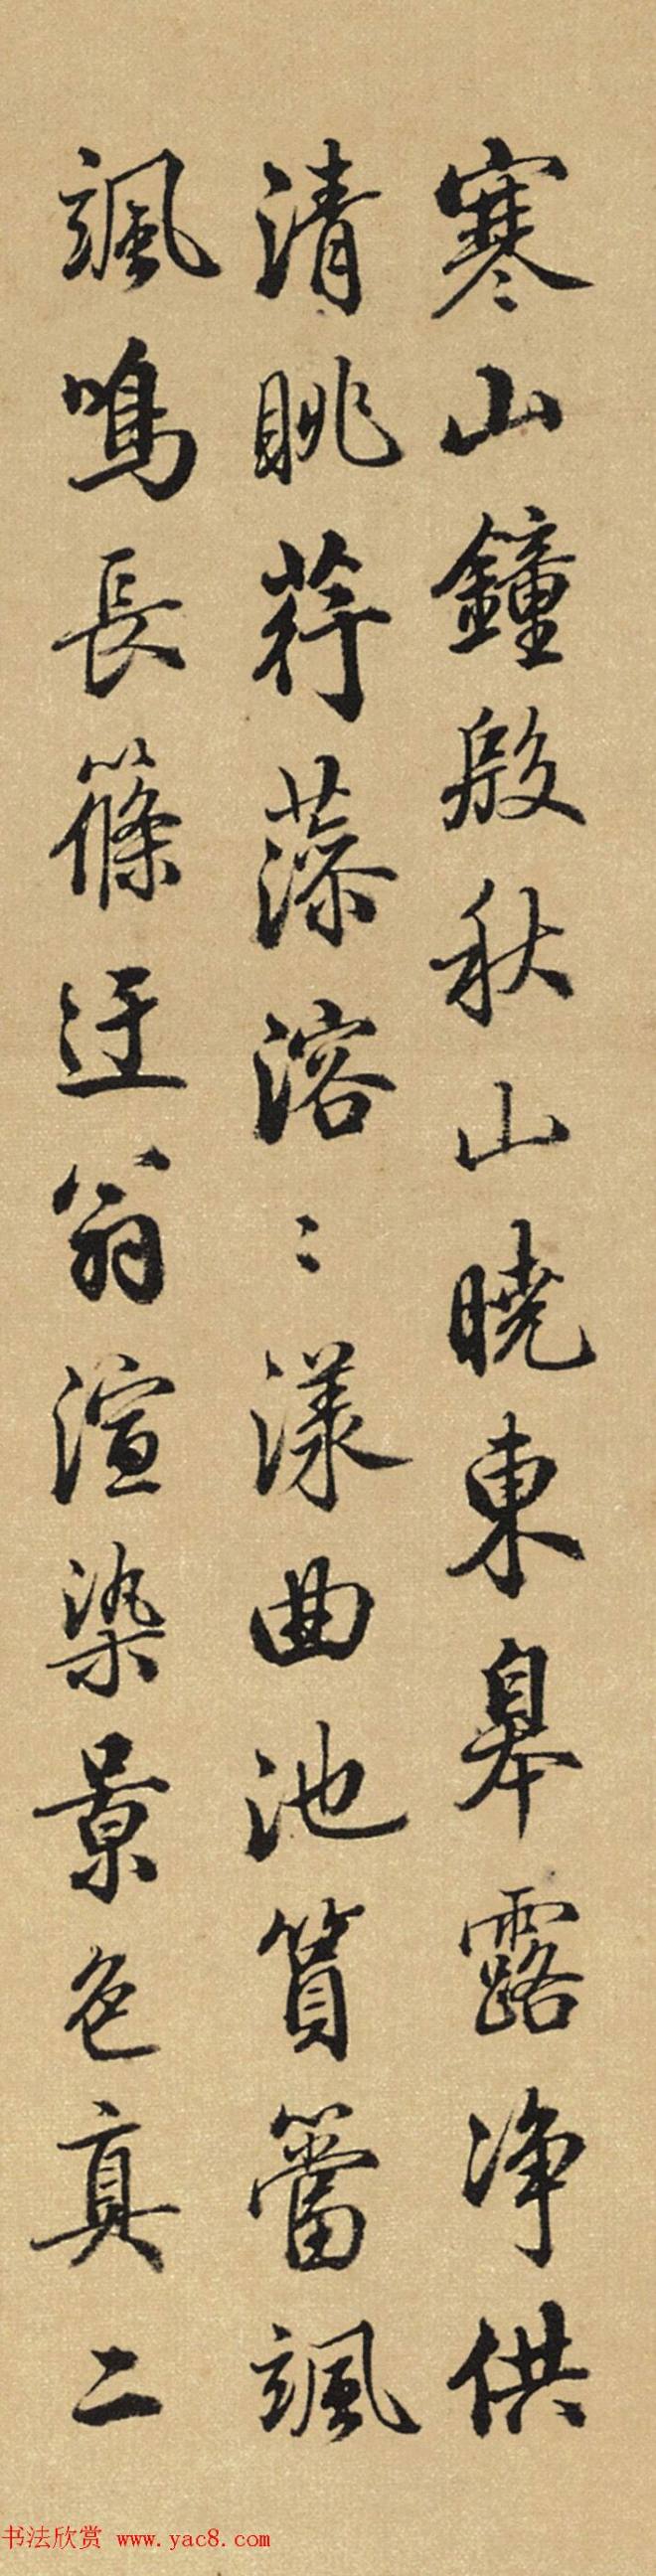 寒山鐘殷秋山曉東皋露净供
清眺荇藻溶〻漾曲池篔簹颯
颯鳴長篠迂翁渲染景色真二
书法欣赏 www.yac8.com